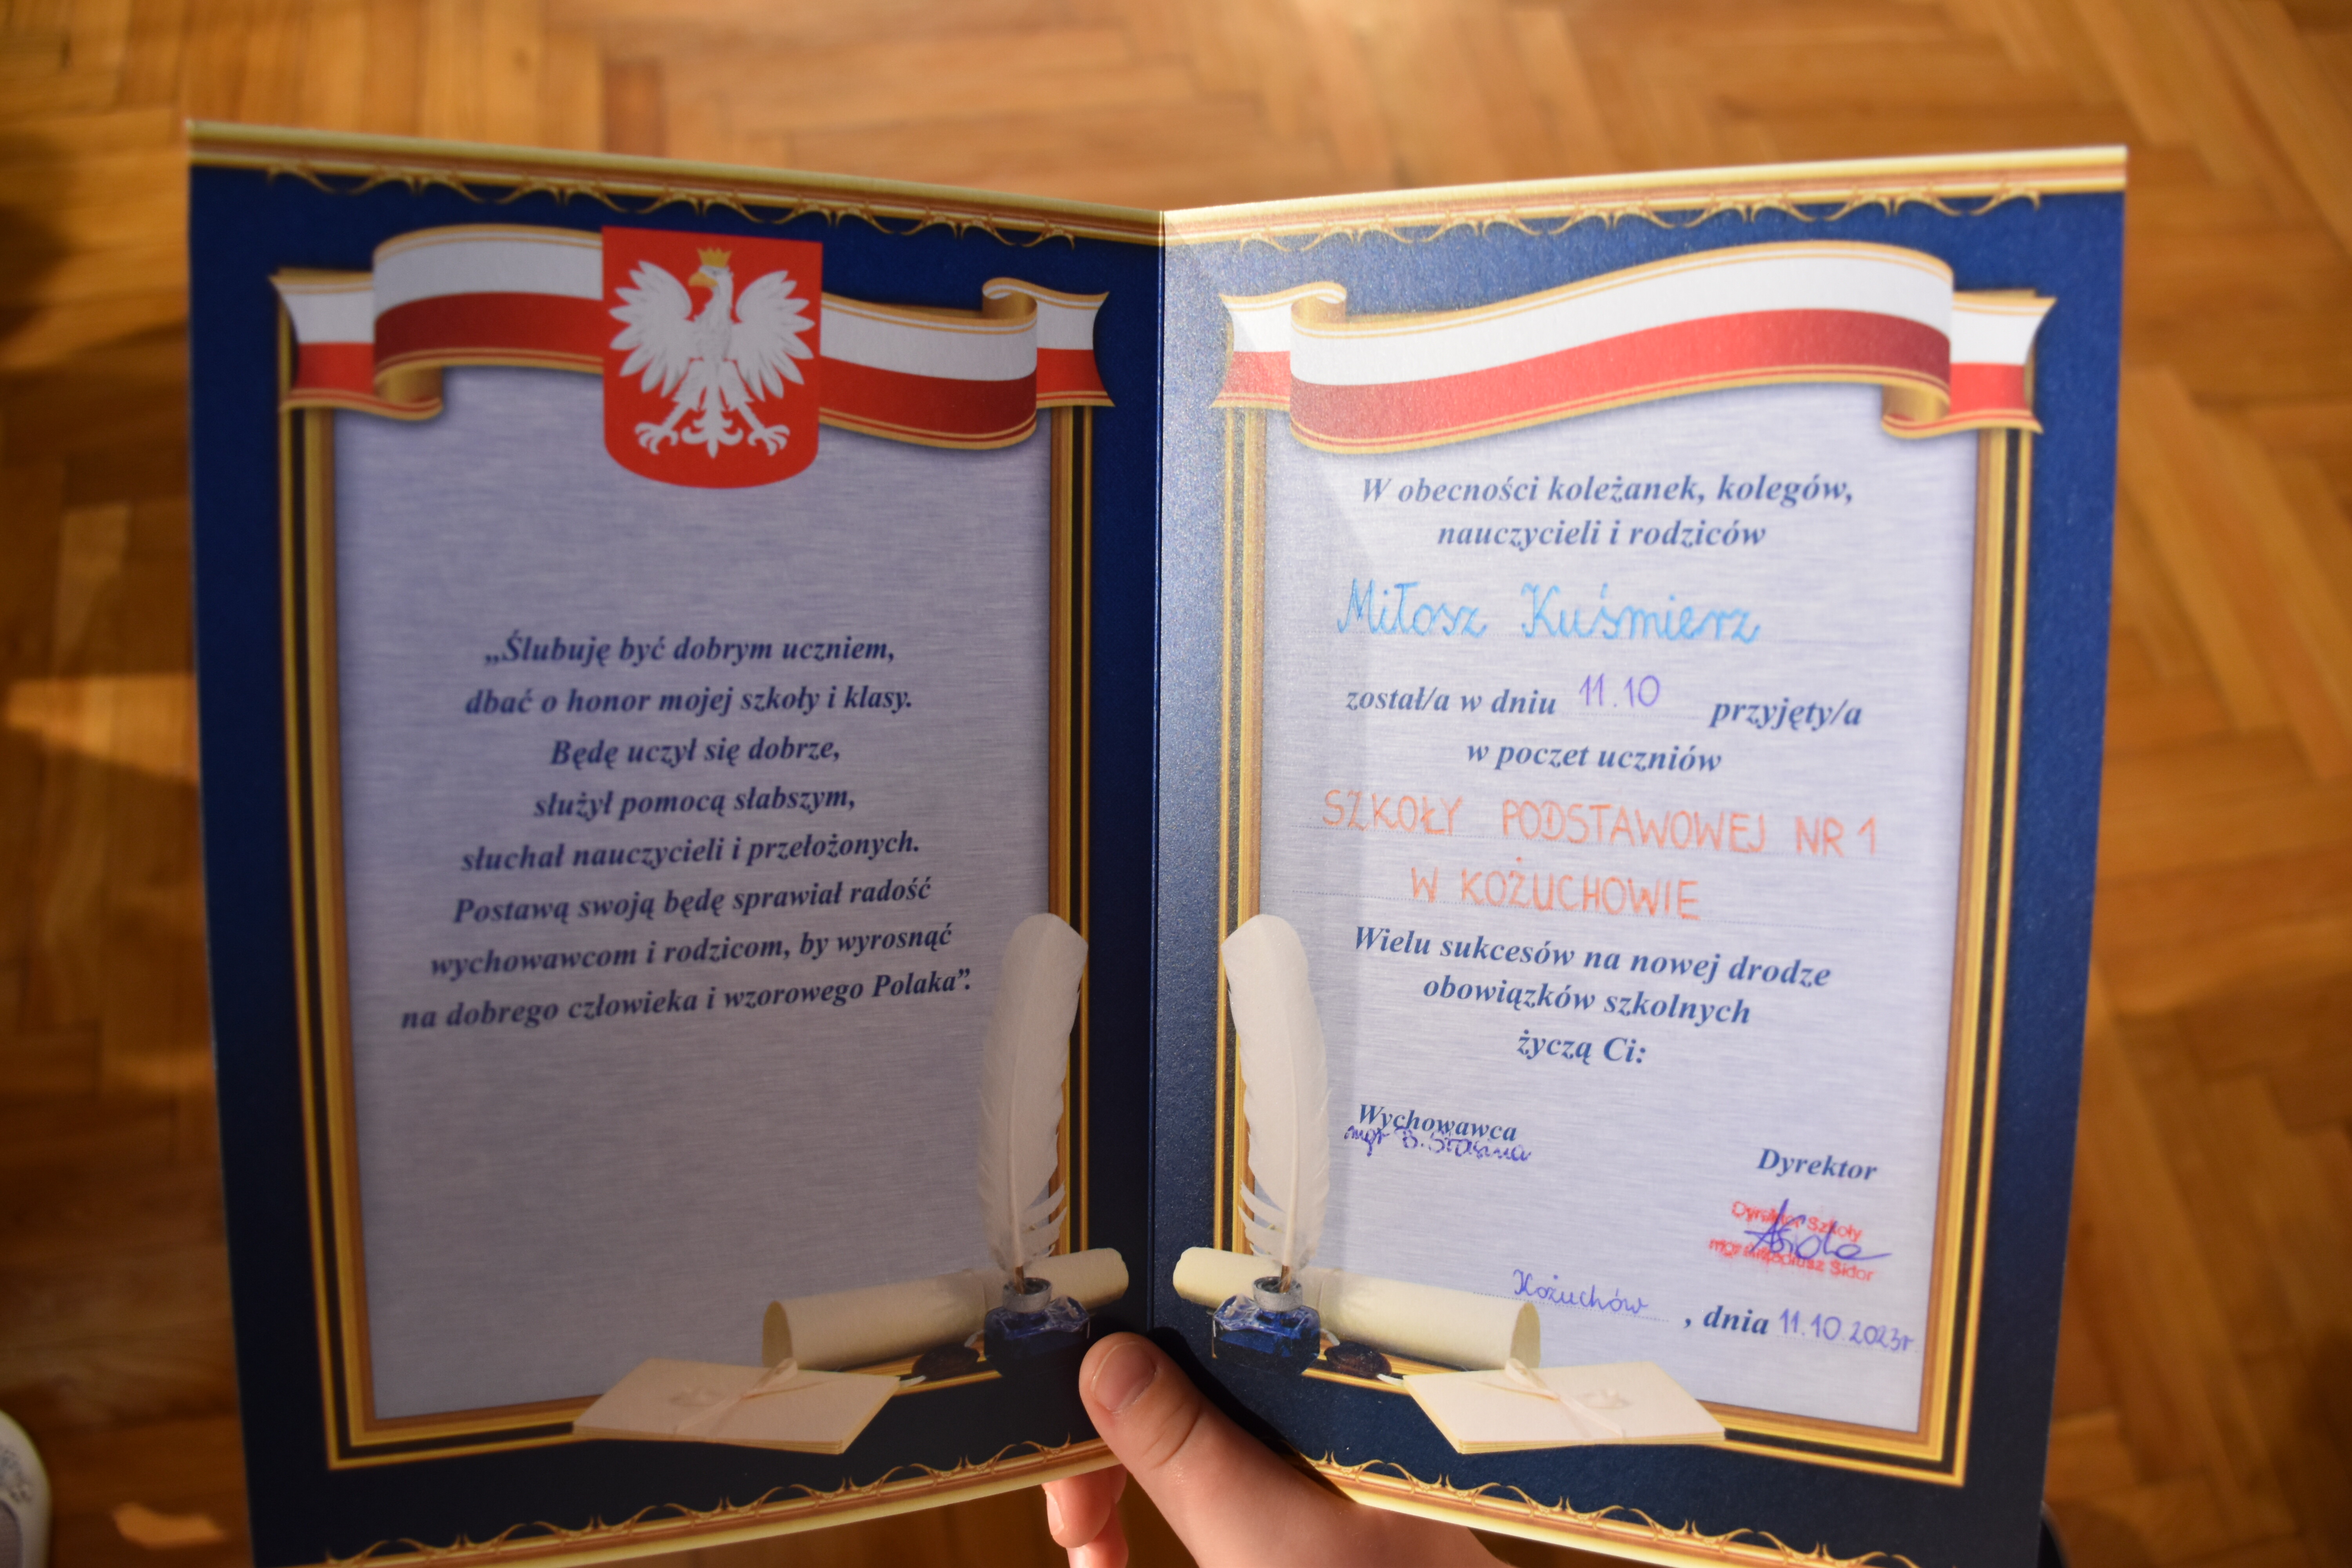 „Ślubuję być dobrym uczniem,
dbać o honor mojej szkoły i klasy.
Będę uczył się dobrze,
służył pomocą słabszym,
słuchał nauczycieli i przełożonych.
Postawą swoją będę sprawiał radość
wychowawcom i rodzicom, by wyrosnąć
na dobrego człowieka i wzorowego Polaka”.
W obecności koleżanek, kolegów,
nauczycieli i rodziców
Miłosz Kuśmierz
został/a w dniu 11.10 przyjęty/a
w poczet uczniów
SZKOŁY PODSTAWOWEJ NR 1
W KOŻUCHOWIE
Wielu sukcesów na nowej drodze
obowiązków szkolnych
życzą Ci:
Wychowawca
mgr B.
Dyrektor
Dyrektor Szkoły
mgr Sidor
Kożuchów, dnia 11.10.2023r